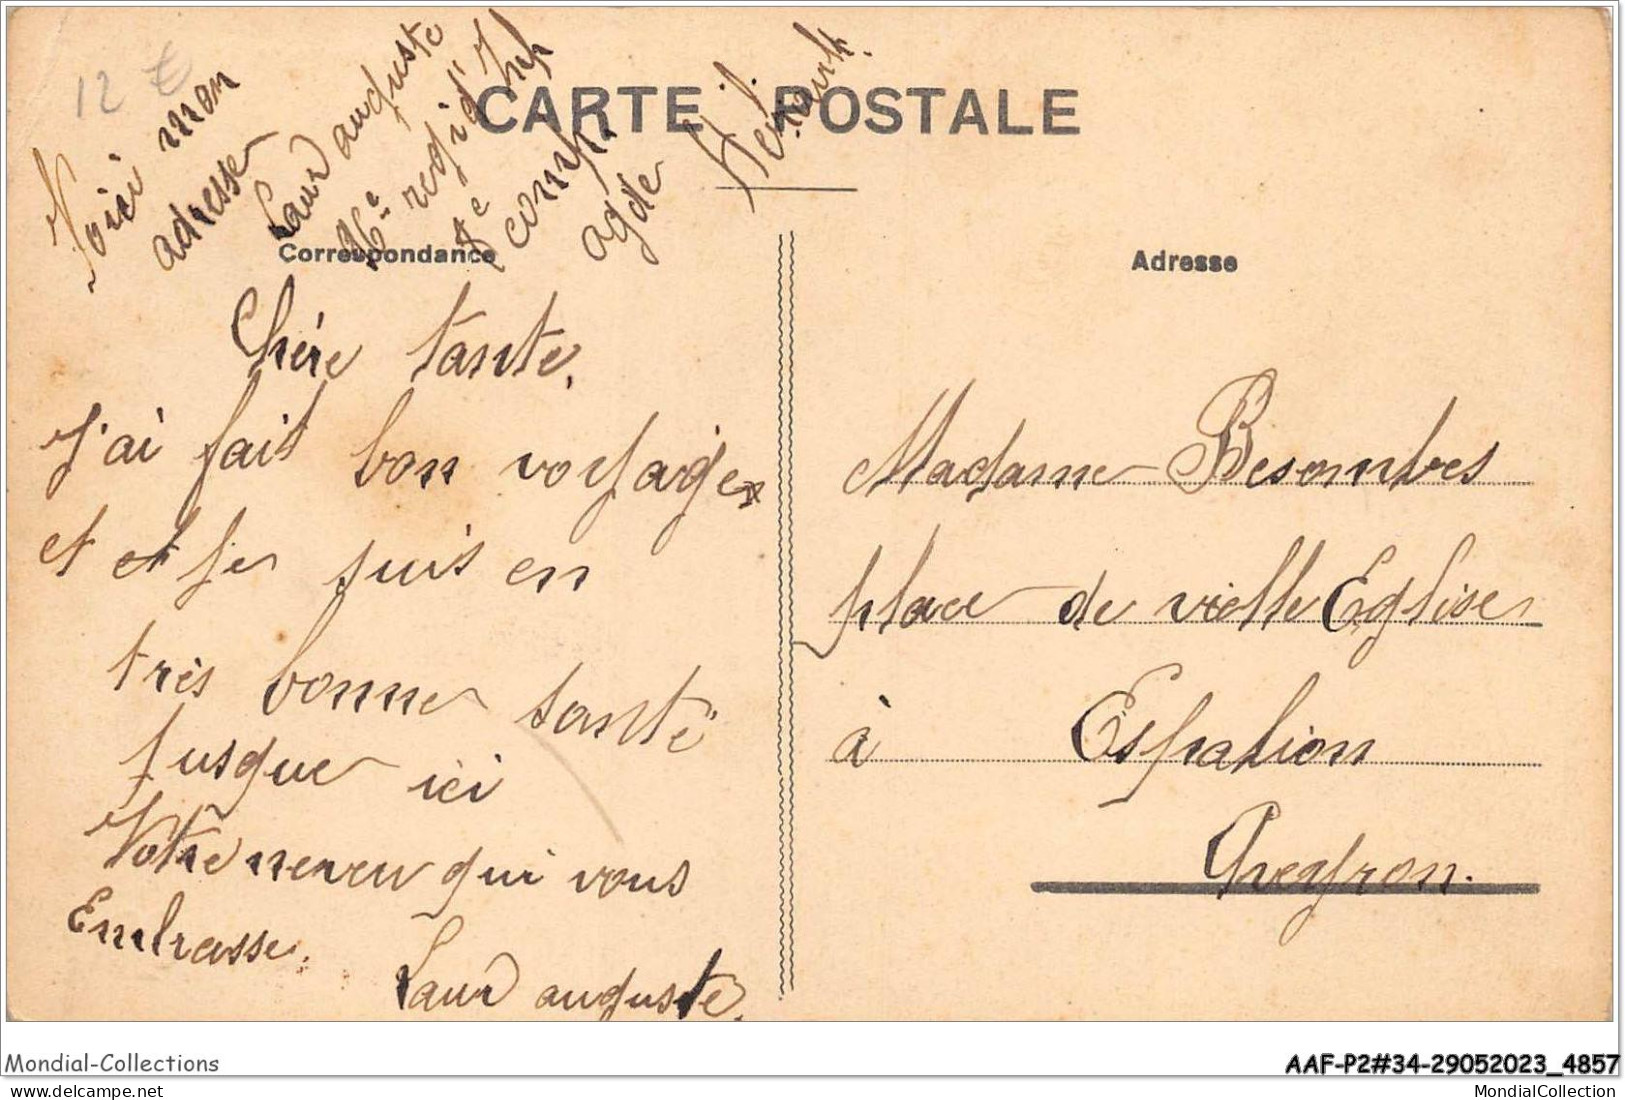 12 €
Voici mon
adresse
Laur auguste
96e regi d'Inf
8e comp.
agde
Hérault.
CARTE POSTALE
Correspondance
Chére tante.
J'ai fait bon voyage
et et je suis en
très bonne santé
jusque ici
Votre neveu qui vous
Embrasse.
Laur auguste.
Adresse
Madame Besombes
place de vielle Eglise
à Espalion
Aveyron.
Mondial-Collections
AAF-P2#34-29052023_4857
delcampe.net
MondialCollection